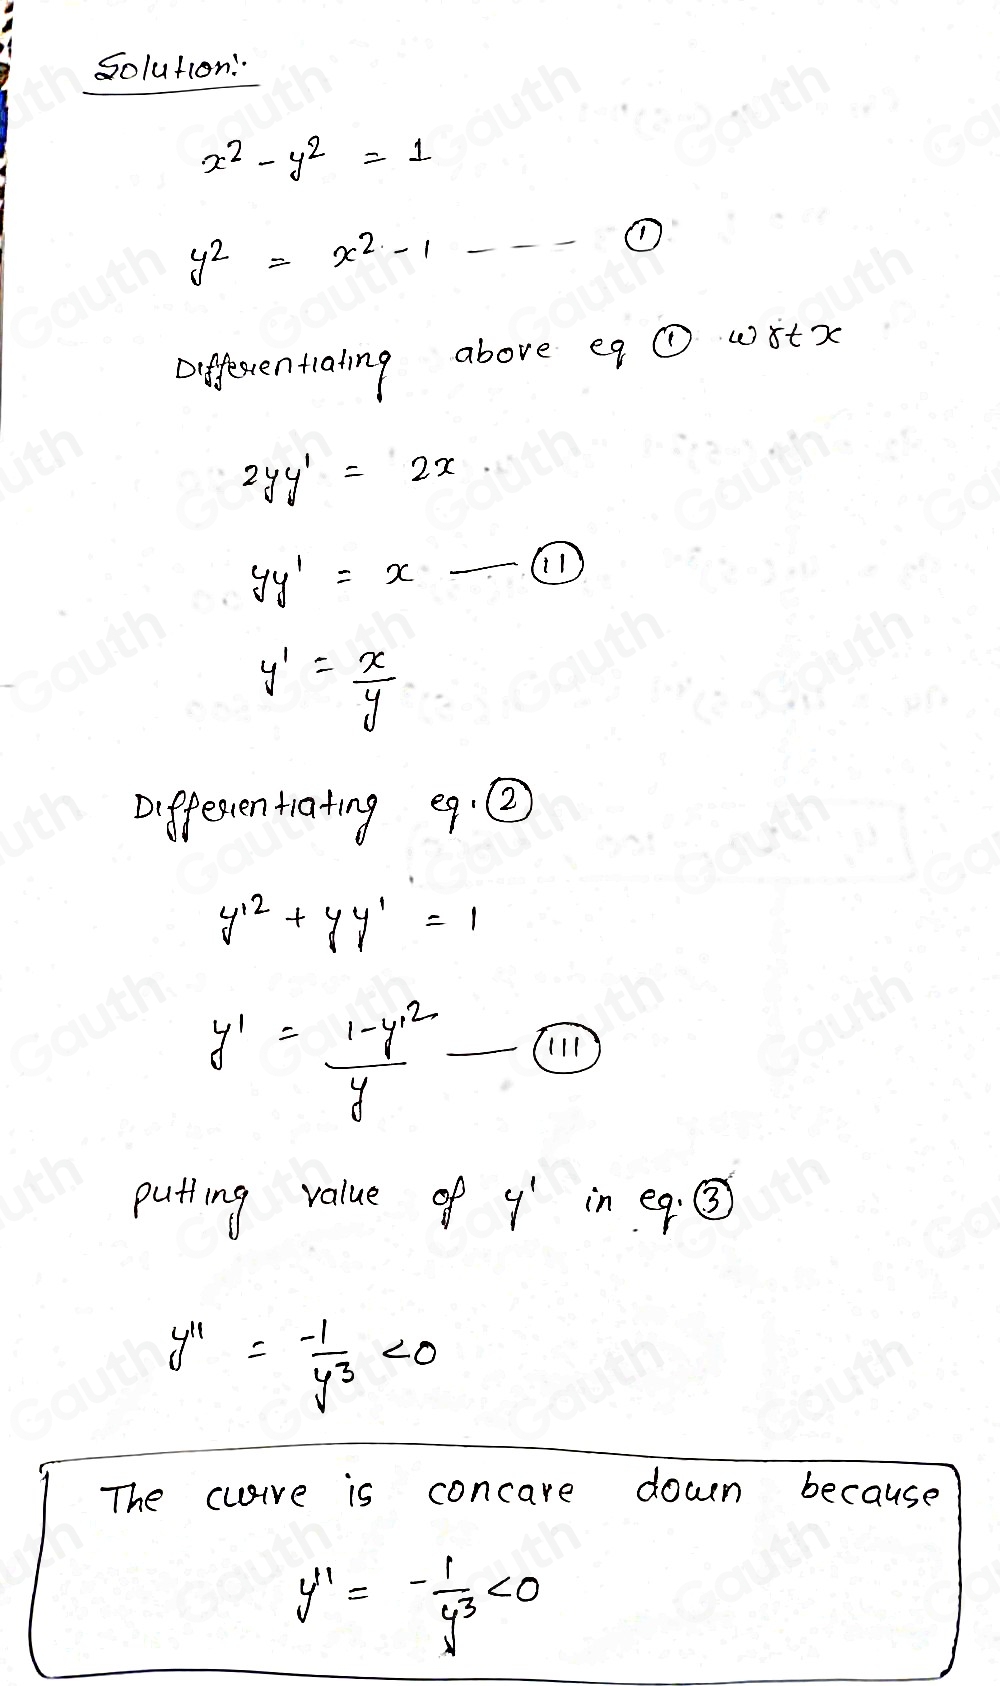 Solution:
x² - y² = 1
y² = x² - 1 ---- ①
Differentiating above eq ① wrt x
2yy' = 2x
yy' = x — (II)
y' = x/y
Differentiating eq. ②
y'² + yy' = 1
y' = (1-y'²)/y — (III)
putting value of y' in eq. ③
y'' = -1/y³ <0
The curve is concave down because
y'' = -1/y³ <0
Gauth